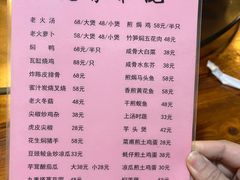 老火汤 68/大煲 48/小煲
老火萝卜 58/大煲 48/小煲
焖鸭 58元/半只
瓦缸焗鸡 58元/半只
炸陈皮排骨 58元
蜜汁炭烧叉烧 58元
老火冬菇 48元
尖椒炒鸡 48元
虎皮尖椒 28元
花生焖猪手 58元
豆豉鲮鱼炒凉瓜 33元
芋茸酿茄瓜 大38元 小28元
煎焗鸡 58元/半只
竹笋焖五花肉 48元
咸骨大白菜 38元
咸骨水东芥 38元
煎焗马头鱼 58元
香煎黄花鱼 58元
干煎蚬鱼 48元
上汤时蔬 33元
芋头煲 38元
菜甫煎土鸡蛋 38元
蚝仔煎土鸡蛋 38元
凉瓜煎土鸡蛋 38元